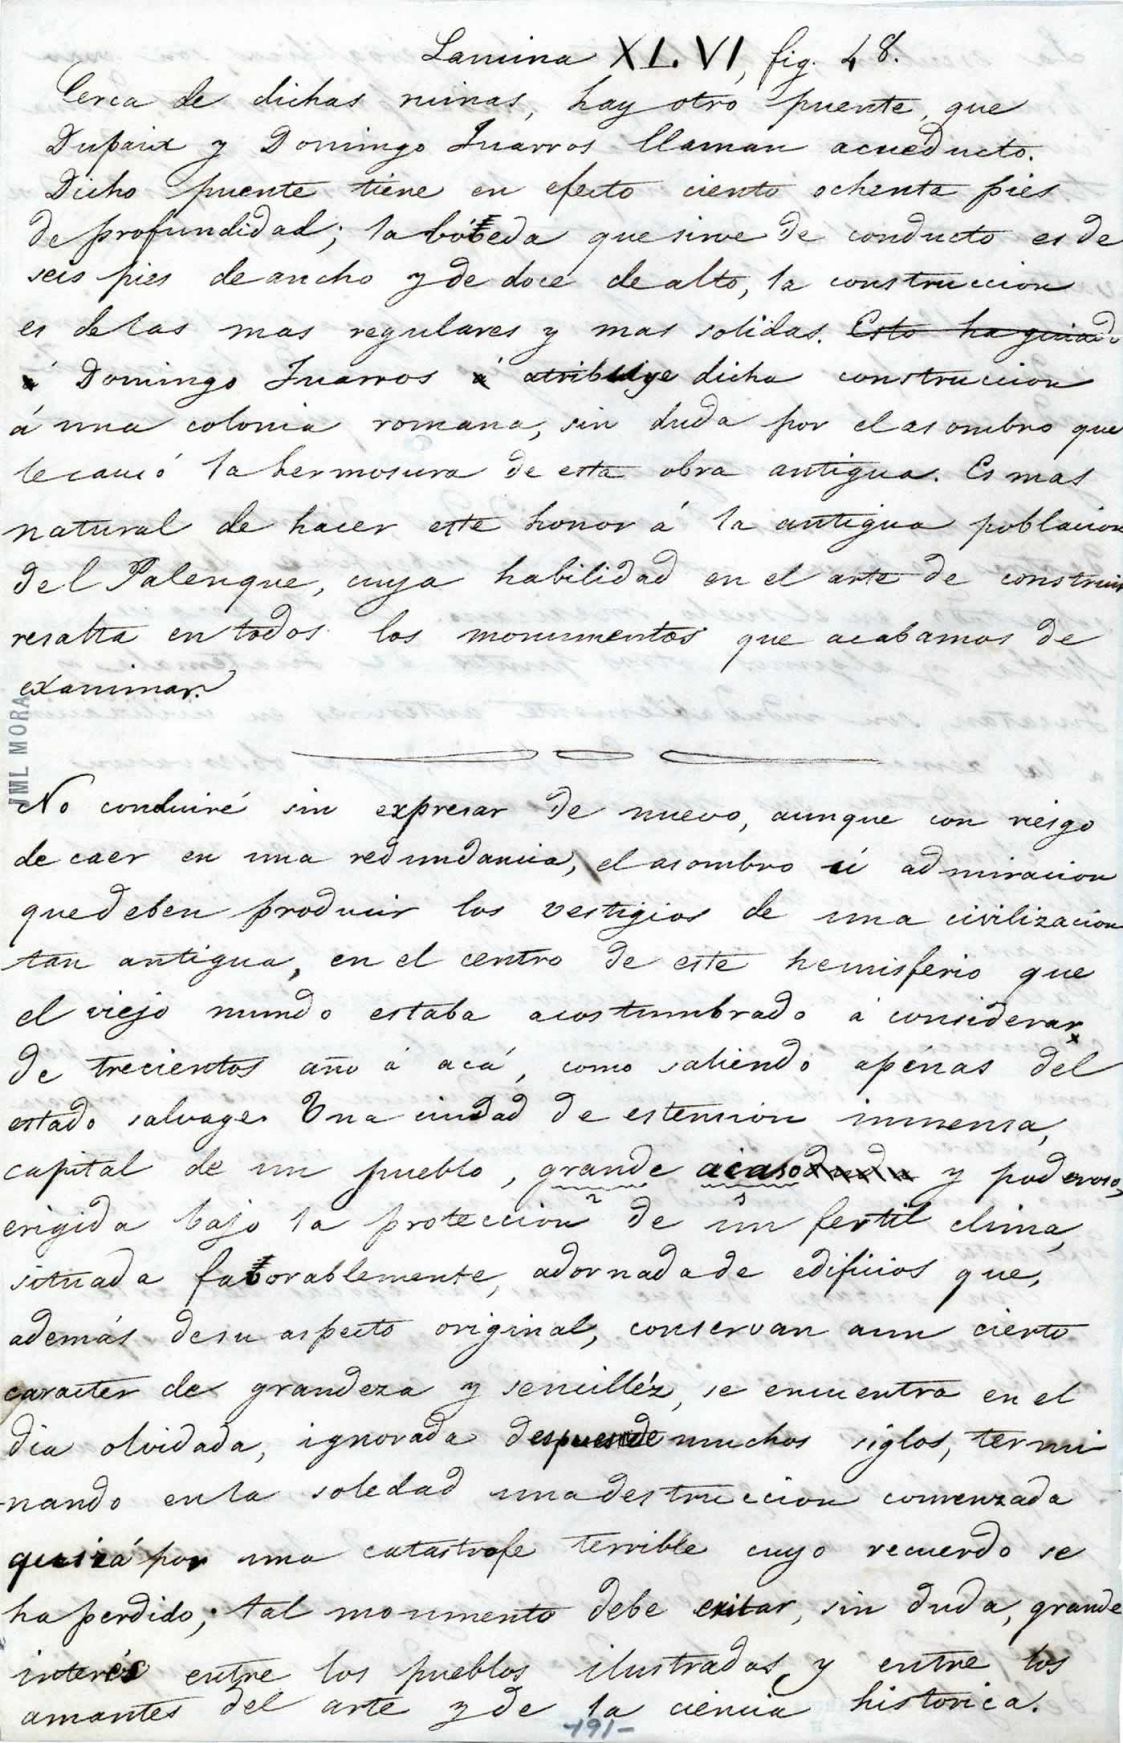 Lamina XL.VI, fig. 48.
Cerca de dichas ruinas, hay otro puente, que
Dupaix y Domingo Juarros llaman acueducto.
Dicho puente tiene en efecto ciento ochenta pies
de profundidad; la bóveda que sirve de conducto es de
seis pies de ancho y de doce de alto, la construccion
es de las mas regulares y mas solidas. Esto ha guiado
á Domingo Juarros á atribuye dicha construccion
á una colonia romana, sin duda por el asombro que
le causó la hermosura de esta obra antigua. Es mas
natural de hacer este honor á la antigua poblacion
del Palenque, cuya habilidad en el arte de construir
resalta en todos los monumentos que acabamos de
examinar.
JML MORA
No concluiré sin expresar de nuevo, aunque con riesgo
de caer en una redundancia, el asombro ú admiracion
que deben producir los vestigios de una civilizacion
tan antigua, en el centro de este hemisferio que
el viejo mundo estaba acostumbrado á considerar
de trecientos año á acá, como saliendo apénas del
estado salvage. Una ciudad de estension inmensa,
capital de un pueblo, grande acaso y poderoso,
erigida bajo la proteccion de un fertil clima,
situada favorablemente, adornada de edificios que,
además de su aspecto original, conservan aun cierto
caracter de grandeza y sencilléz, se encuentra en el
dia olvidada, ignorada despues de muchos siglos, termi
nando en la soledad una destruccion comenzada
quizá por una catastrofe terrible cuyo recuerdo se
ha perdido; tal monumento debe exitar, sin duda, grande
interés entre los pueblos ilustrados y entre los
amantes del arte y de la ciencia historica.
-191-